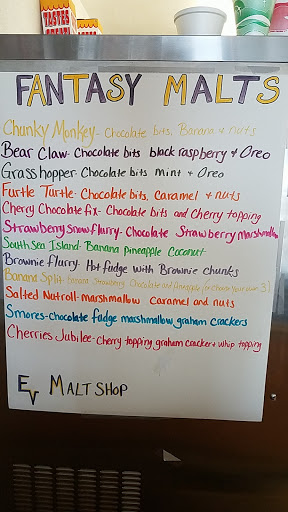 TASTES
GREAT!
FANTASY MALTS
Chunky Monkey- Chocolate bits, Banana & nuts
Bear Claw- Chocolate bits black raspberry & Oreo
Grasshopper- Chocolate bits Mint & Oreo
Furtle Turtle- Chocolate bits, Caramel & nuts
Cherry Chocolate fix- Chocolate bits and Cherry topping
Strawberry Snow flurry- Chocolate Strawberry marshmallow
South Sea Island- Banana Pineapple Coconut
Brownie flurry- Hot fudge with Brownie chunks
Banana Split- Strawberry Chocolate and Pineapple (or choose your own 3)
Salted Nutroll- marshmallow Caramel and nuts
Smores- chocolate fudge marshmallow graham crackers
Cherries Jubilee- Cherry topping graham cracker & whip topping
EV MALT SHOP